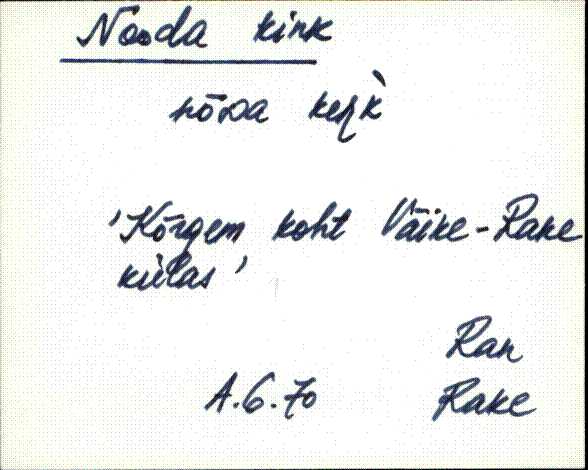 Nooda kink
nõɷa keŋk̀
'Kõrgem koht Väike-Rake
külas'
Ran
A.G.70 Rake